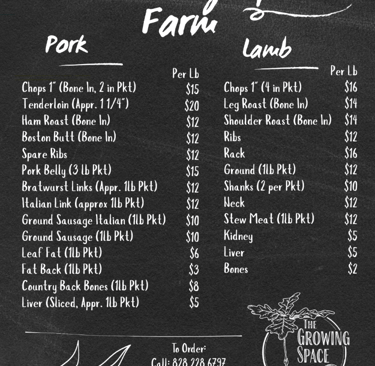 Farm
Pork
Per Lb
Chops 1" (Bone In, 2 in Pkt) $15
Tenderloin (Appr. 1 1/4") $20
Ham Roast (Bone In) $12
Boston Butt (Bone In) $12
Spare Ribs $12
Pork Belly (3 lb Pkt) $15
Bratwurst Links (Appr. 1lb Pkt) $12
Italian Link (approx 1lb Pkt) $12
Ground Sausage Italian (1lb Pkt) $10
Ground Sausage (1lb Pkt) $10
Leaf Fat (1lb Pkt) $6
Fat Back (1lb Pkt) $3
Country Back Bones (1lb Pkt) $8
Liver (Sliced, Appr. 1lb Pkt) $5
Lamb
Per Lb
Chops 1" (4 in Pkt) $16
Leg Roast (Bone In) $14
Shoulder Roast (Bone In) $14
Ribs $12
Rack $16
Ground (1lb Pkt) $12
Shanks (2 per Pkt) $10
Neck $12
Stew Meat (1lb Pkt) $12
Kidney $5
Liver $5
Bones $2
To Order:
Call: 828 228 6797
THE
GROWING
SPACE